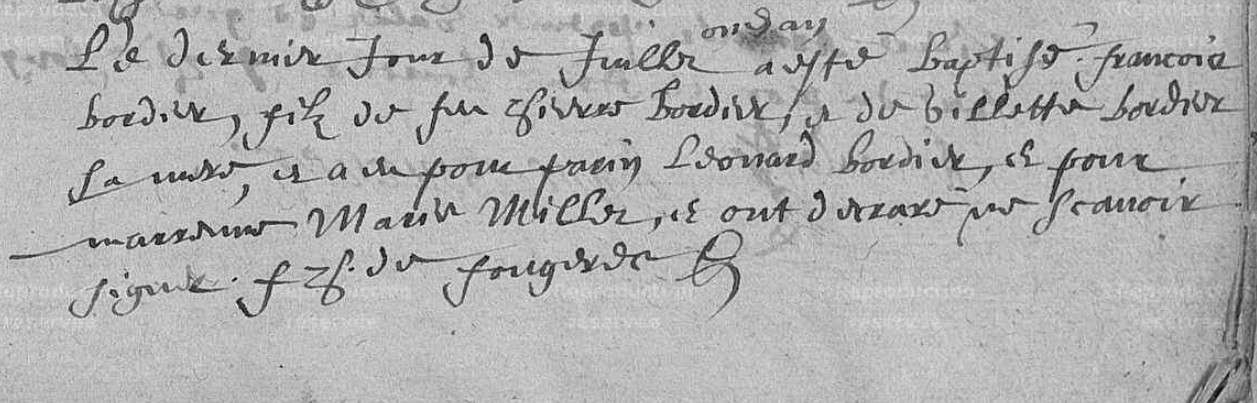 Le dernier Jour de Juillet ondit an
a esté baptisé francois
bordier, filz de feu pierre bordier, et de billette bordier
sa mere, et a eu pour parin Leonard bordier, et pour
marreine Marie Millet, et ont declaré ne scavoir
signer. f p. de fougerde